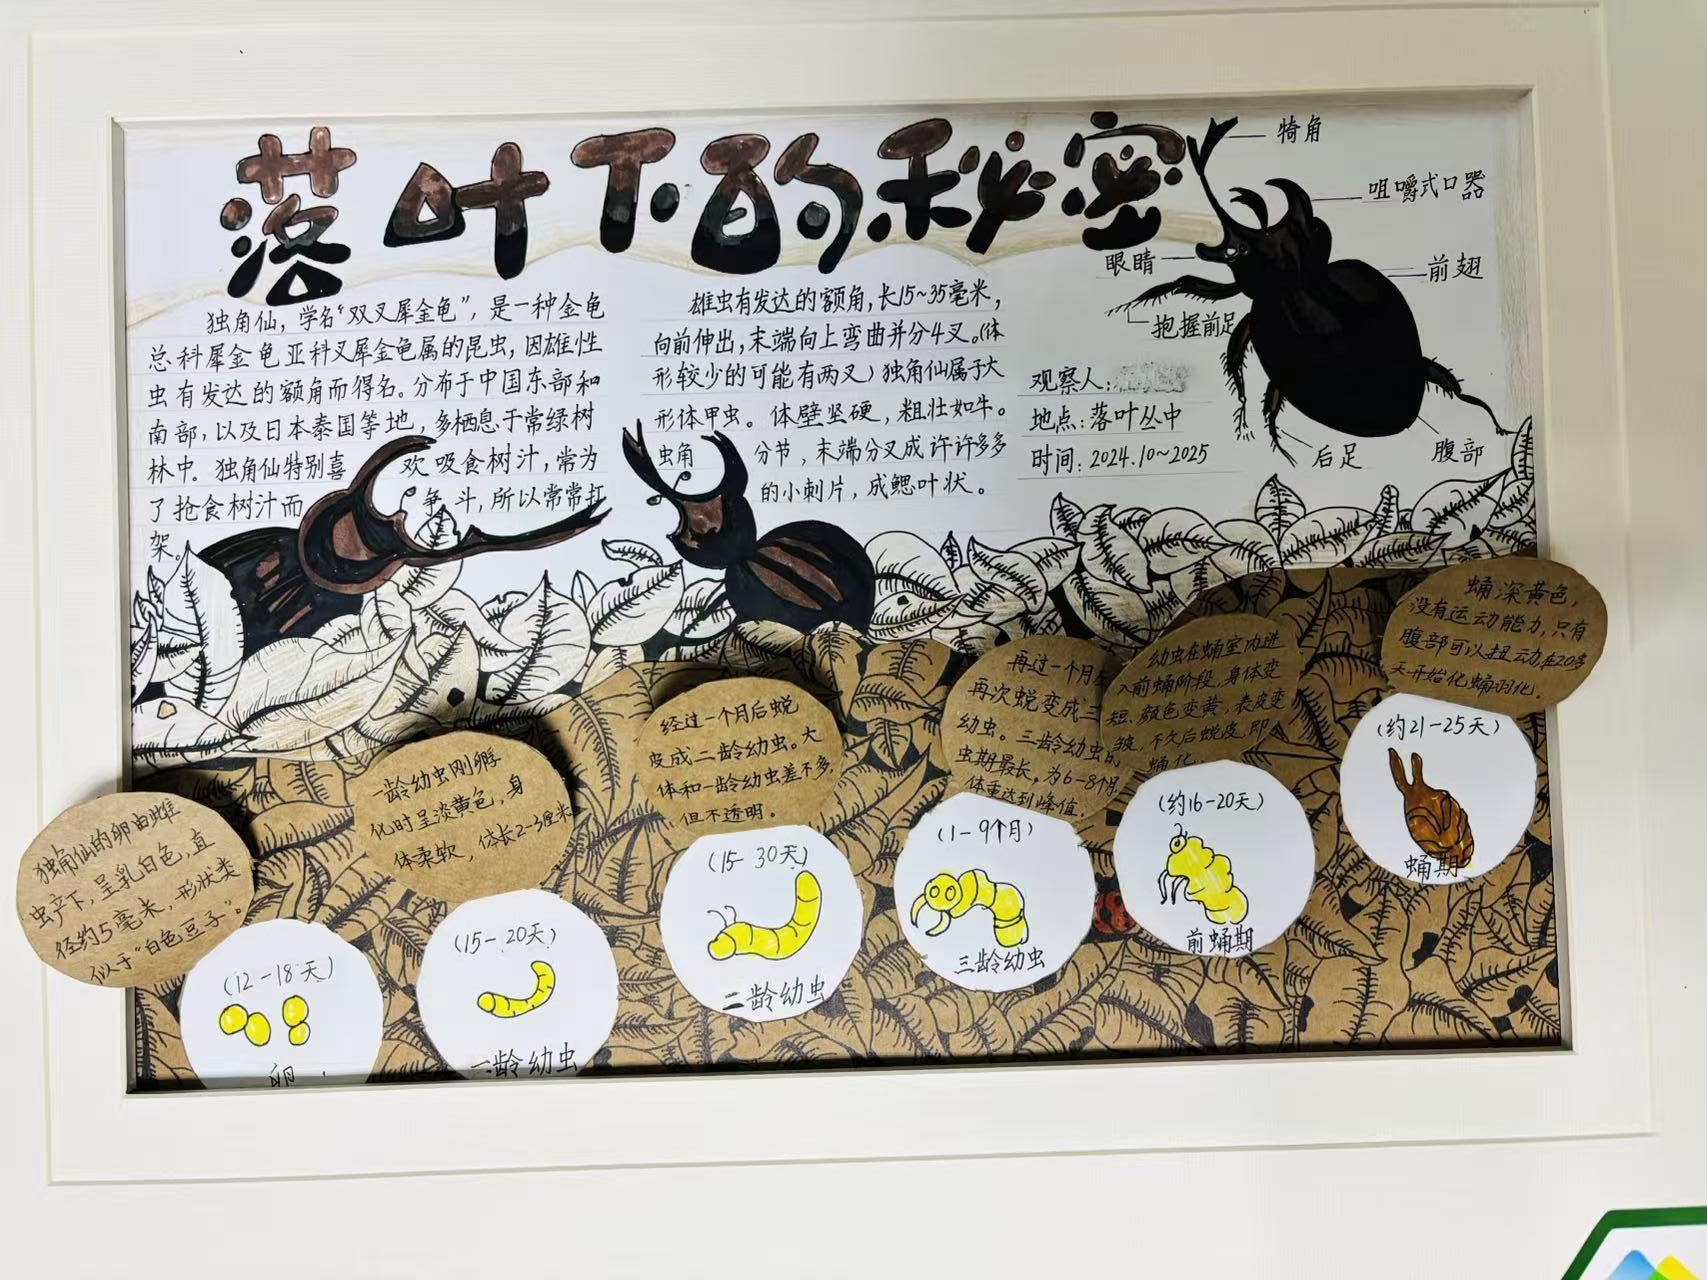 落叶下的秘密
独角仙，学名“双叉犀金龟”，是一种金龟
总科犀金龟亚科叉犀金龟属的昆虫，因雄性
虫有发达的额角而得名。分布于中国东部和
南部，以及日本泰国等地，多栖息于常绿树
林中。独角仙特别喜欢吸食树汁，常为
了抢食树汁而争斗，所以常常打
架。
雄虫有发达的额角，长15~35毫米，
向前伸出，末端向上弯曲并分4叉。（体
形较少的可能有两叉）独角仙属于大
形体甲虫。体壁坚硬，粗壮如牛。
虫角分节，末端分叉成许许多多
的小刺片，成鳃叶状。
犄角
咀嚼式口器
眼睛
前翅
抱握前足
后足
腹部
观察人：
地点：落叶丛中
时间：2024.10~2025
独角仙的卵由雌
虫产下，呈乳白色，直
径约5毫米，形状类
似于“白色豆子”。
（12-18天）
卵
一龄幼虫刚孵
化时呈淡黄色，身
体柔软，体长2-3厘米
（15-20天）
一龄幼虫
经过一个月后蜕
皮成二龄幼虫。大
体和一龄幼虫差不多，
但不透明。
（15-30天）
二龄幼虫
再过一个月
再次蜕变成三
幼虫。三龄幼虫
虫期最长，为6-8个月，
体重达到峰值。
（1-9个月）
三龄幼虫
幼虫在蛹室内进
入前蛹阶段，身体变
短、颜色变黄，表皮变
皱，不久后蜕皮，即
蛹化。
（约16-20天）
前蛹期
蛹深黄色，
没有运动能力，只有
腹部可以扭动，在20多
天开始化蛹羽化。
（约21-25天）
蛹期